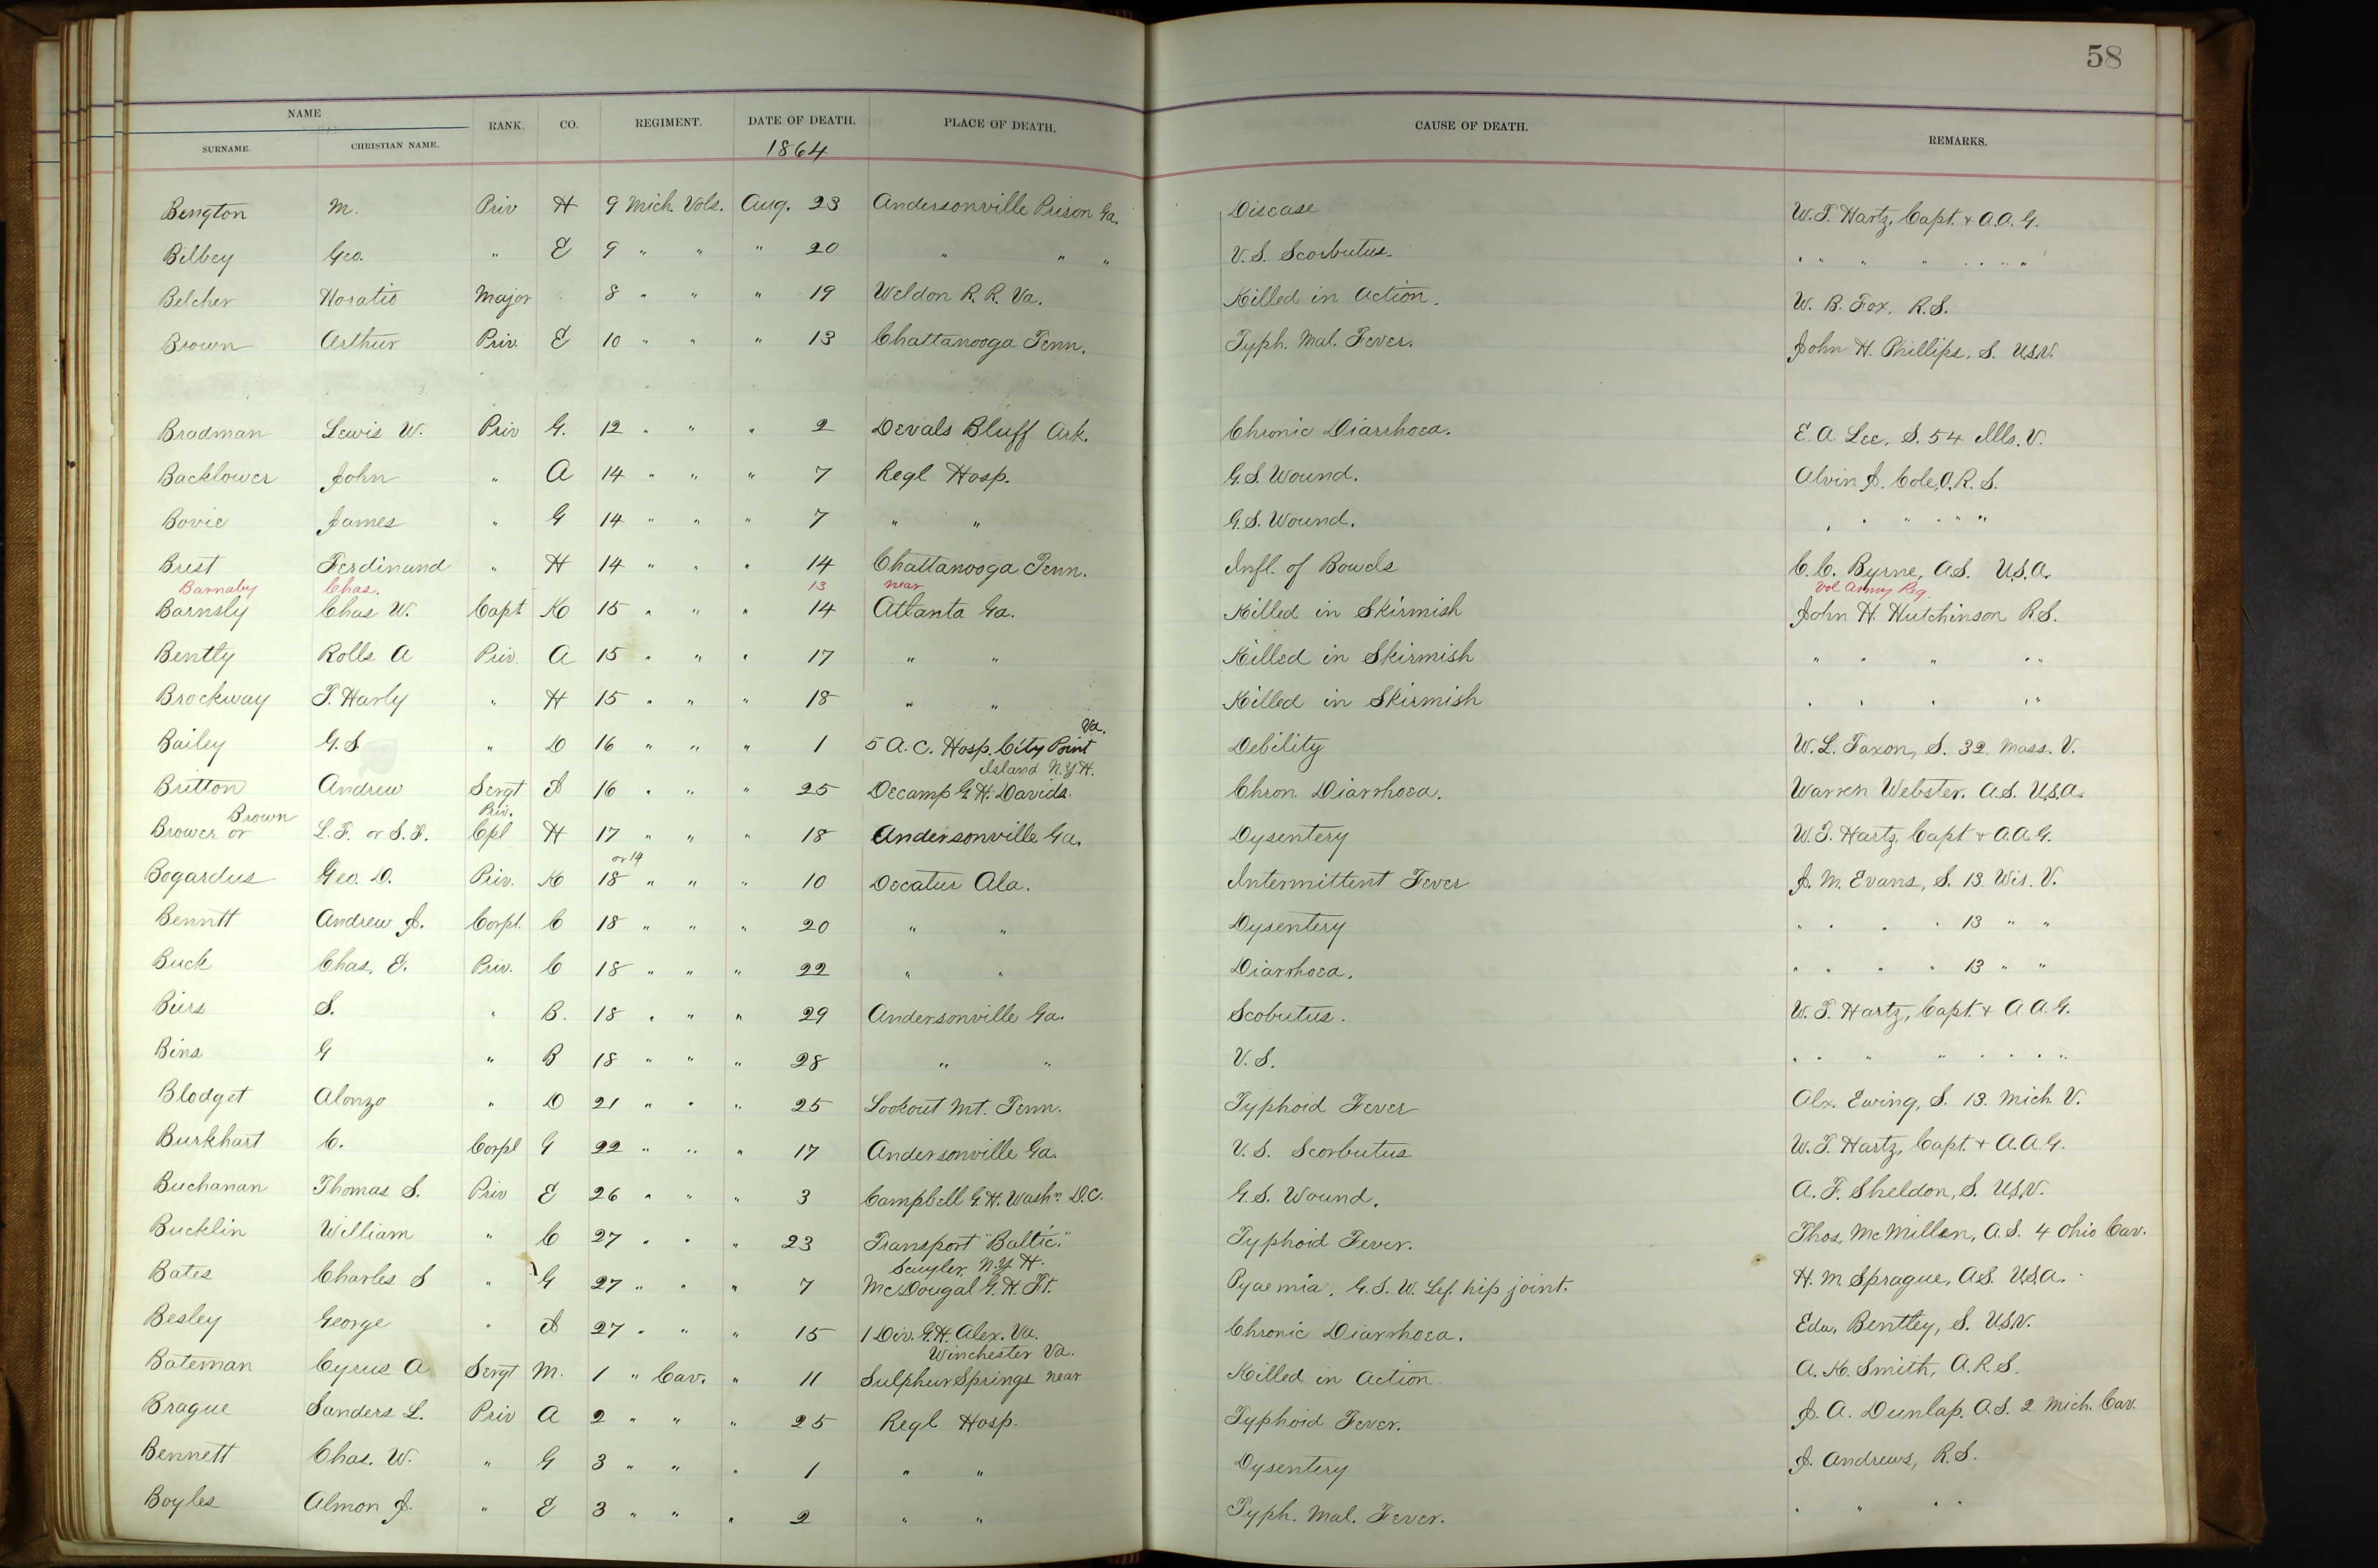 58
NAME
SURNAME. CHRISTIAN NAME. RANK. CO. REGIMENT. DATE OF DEATH. PLACE OF DEATH. CAUSE OF DEATH. REMARKS.
1864
Bengton M. Priv H 9 Mich. Vols. Aug. 23 Andersonville Prison Ga. Disease W. T. Hartz, Capt. & A.A.G.
Bilbey Geo. " E 9 " " " 20 " " " V. S. Scorbutus. " " " " " " " "
Belcher Horatio Major 8 " " " 19 Weldon R. R. Va. Killed in Action. W. B. Fox, R.S.
Brown Arthur Priv. E 10 " " " 13 Chattanooga Tenn. Typh. Mal. Fever. John H. Phillips, S. U.S.V.
Bradman Lewis W. Priv G. 12 " " " 2 Devals Bluff Ark. Chronic Diarrhoea. E. A. Lee, S. 54 Ills. V.
Backlower John " A 14 " " " 7 Regl Hosp. G.S. Wound. Alvin J. Cole, A.R.S.
Bovie James " G 14 " " " 7 " " G.S. Wound. " " " " " "
Brest Ferdinand " H 14 " " " 14 Chattanooga Tenn. Infl. of Bowels C. C. Byrne, A.S. U.S.A.
Barnaby Chas. 13 near Vol Army Reg.
Barnsly Chas W. Capt K 15 " " " 14 Atlanta Ga. Killed in Skirmish John H. Hutchinson R.S.
Bently Rolls A Priv. A 15 " " " 17 " " Killed in Skirmish " " " " "
Brockway T. Harly " H 15 " " " 18 " " Killed in Skirmish " " " " "
Va.
Bailey G. S " D 16 " " " 1 5 A. C. Hosp. City Point Debility W. L. Faxon, S. 32. Mass. V.
Island N.Y.H.
Britton Andrew Sergt A 16 " " " 25 Decamp G. H. Davids. Chron. Diarrhoea. Warren Webster. A.S. U.S.A.
Brown Priv.
Brower or L. F. or S. F. Cpl H 17 " " " 18 Andersonville Ga. Dysentery W. T. Hartz, Capt & A.A.G.
or 14
Bogardus Geo. D. Priv. K 18 " " " 10 Decatur Ala. Intermittent Fever J. M. Evans, S. 13. Wis. V.
Benntt Andrew J. Corpl. C 18 " " " 20 " " Dysentery " " " " 13 " "
Buck Chas. E. Priv. C 18 " " " 22 " " Diarrhoea. " " " " 13 " "
Biers S. " B. 18 " " " 29 Andersonville Ga. Scobutus. W. T. Hartz, Capt. & A.A.G.
Bins G " B 18 " " " 28 " " V. S. " " " " " " " "
Blodget Alonzo " D 21 " " " 25 Lookout Mt. Tenn. Typhoid Fever Alx. Ewing, S. 13. Mich. V.
Burkhart C. Corpl G 22 " " " 17 Andersonville Ga. V. S. Scorbutus W. T. Hartz, Capt. & A.A.G.
Buchanan Thomas S. Priv E 26 " " " 3 Campbell G. H. Washn. D.C. G.S. Wound. A. F. Sheldon, S. U.S.V.
Bucklin William " C 27 " " " 23 Transport "Baltic." Typhoid Fever. Thos. McMillen, A.S. 4 Ohio Cav.
Scuyler, N.Y.H.
Bates Charles S " G 27 " " " 7 McDougal G. H. Ft. Pyaemia, G. S. W. Lef. hip joint. H. M Sprague, A.S. U.S.A.
Besley George " A 27 " " " 15 1 Div. G.H. Alex. Va. Chronic Diarrhoea. Edw. Bentley, S. U.S.V.
Winchester Va.
Bateman Cyrus A Sergt M. 1 " Cav. " 11 Sulphur Springs near Killed in Action A. K. Smith, A.R.S.
Brague Sanders L. Priv A 2 " " " 25 Regl Hosp. Typhoid Fever. J. A. Dunlap, A.S. 2 Mich. Cav.
Bennett Chas. W. " G 3 " " " 1 " " Dysentery J. Andrews, R.S.
Boyles Almon J. " E 3 " " " 2 " " Typh. Mal. Fever. " " " "